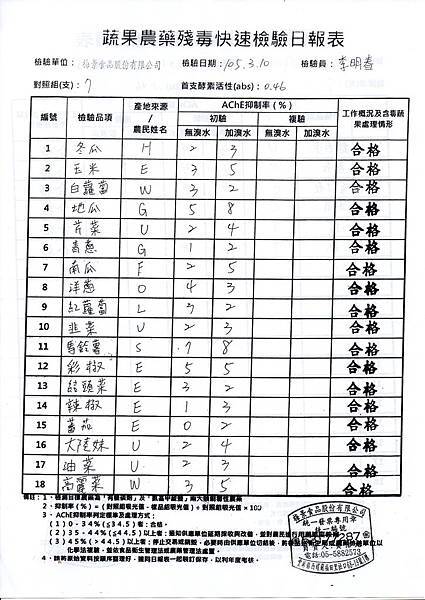 蔬果農藥殘毒快速檢驗日報表
檢驗單位： 股份有限公司 檢驗日期：105.3.10 檢驗員：李明春
對照組(支)：7 首支酵素活性(abs)：0.46
編號 檢驗品項 產地來源/農民姓名 AChE抑制率(%) 工作概況及含毒蔬果處理情形
初驗 複驗
無溴水 加溴水 無溴水 加溴水
1 冬瓜 H 2 3 合格
2 玉米 E 3 5 合格
3 白蘿蔔 W 3 2 合格
4 地瓜 G 5 8 合格
5 芹菜 U 2 4 合格
6 青蔥 G 1 2 合格
7 南瓜 F 2 5 合格
8 洋蔥 O 4 3 合格
9 紅蘿蔔 L 3 2 合格
10 韭菜 U 2 3 合格
11 馬鈴薯 S 7 8 合格
12 彩椒 E 5 5 合格
13 結頭菜 E 3 2 合格
14 辣椒 E 1 3 合格
15 蕃茄 E 0 2 合格
16 大陸妹 U 2 4 合格
17 油菜 U 2 3 合格
18 高麗菜 W 3 5 合格
2、抑制率(%)=(對照組吸光值-樣品組吸光值)÷對照組吸光值×100
3、AChE抑制率判定標準及處理方式：
(1) 0 - 34%(≦34.5)者：合格。
(2) 35 - 44%
(3) 45%(>44.5)以上者：
食品股份有限公司
統一發票專用章
統一編號
電話:05-5882573